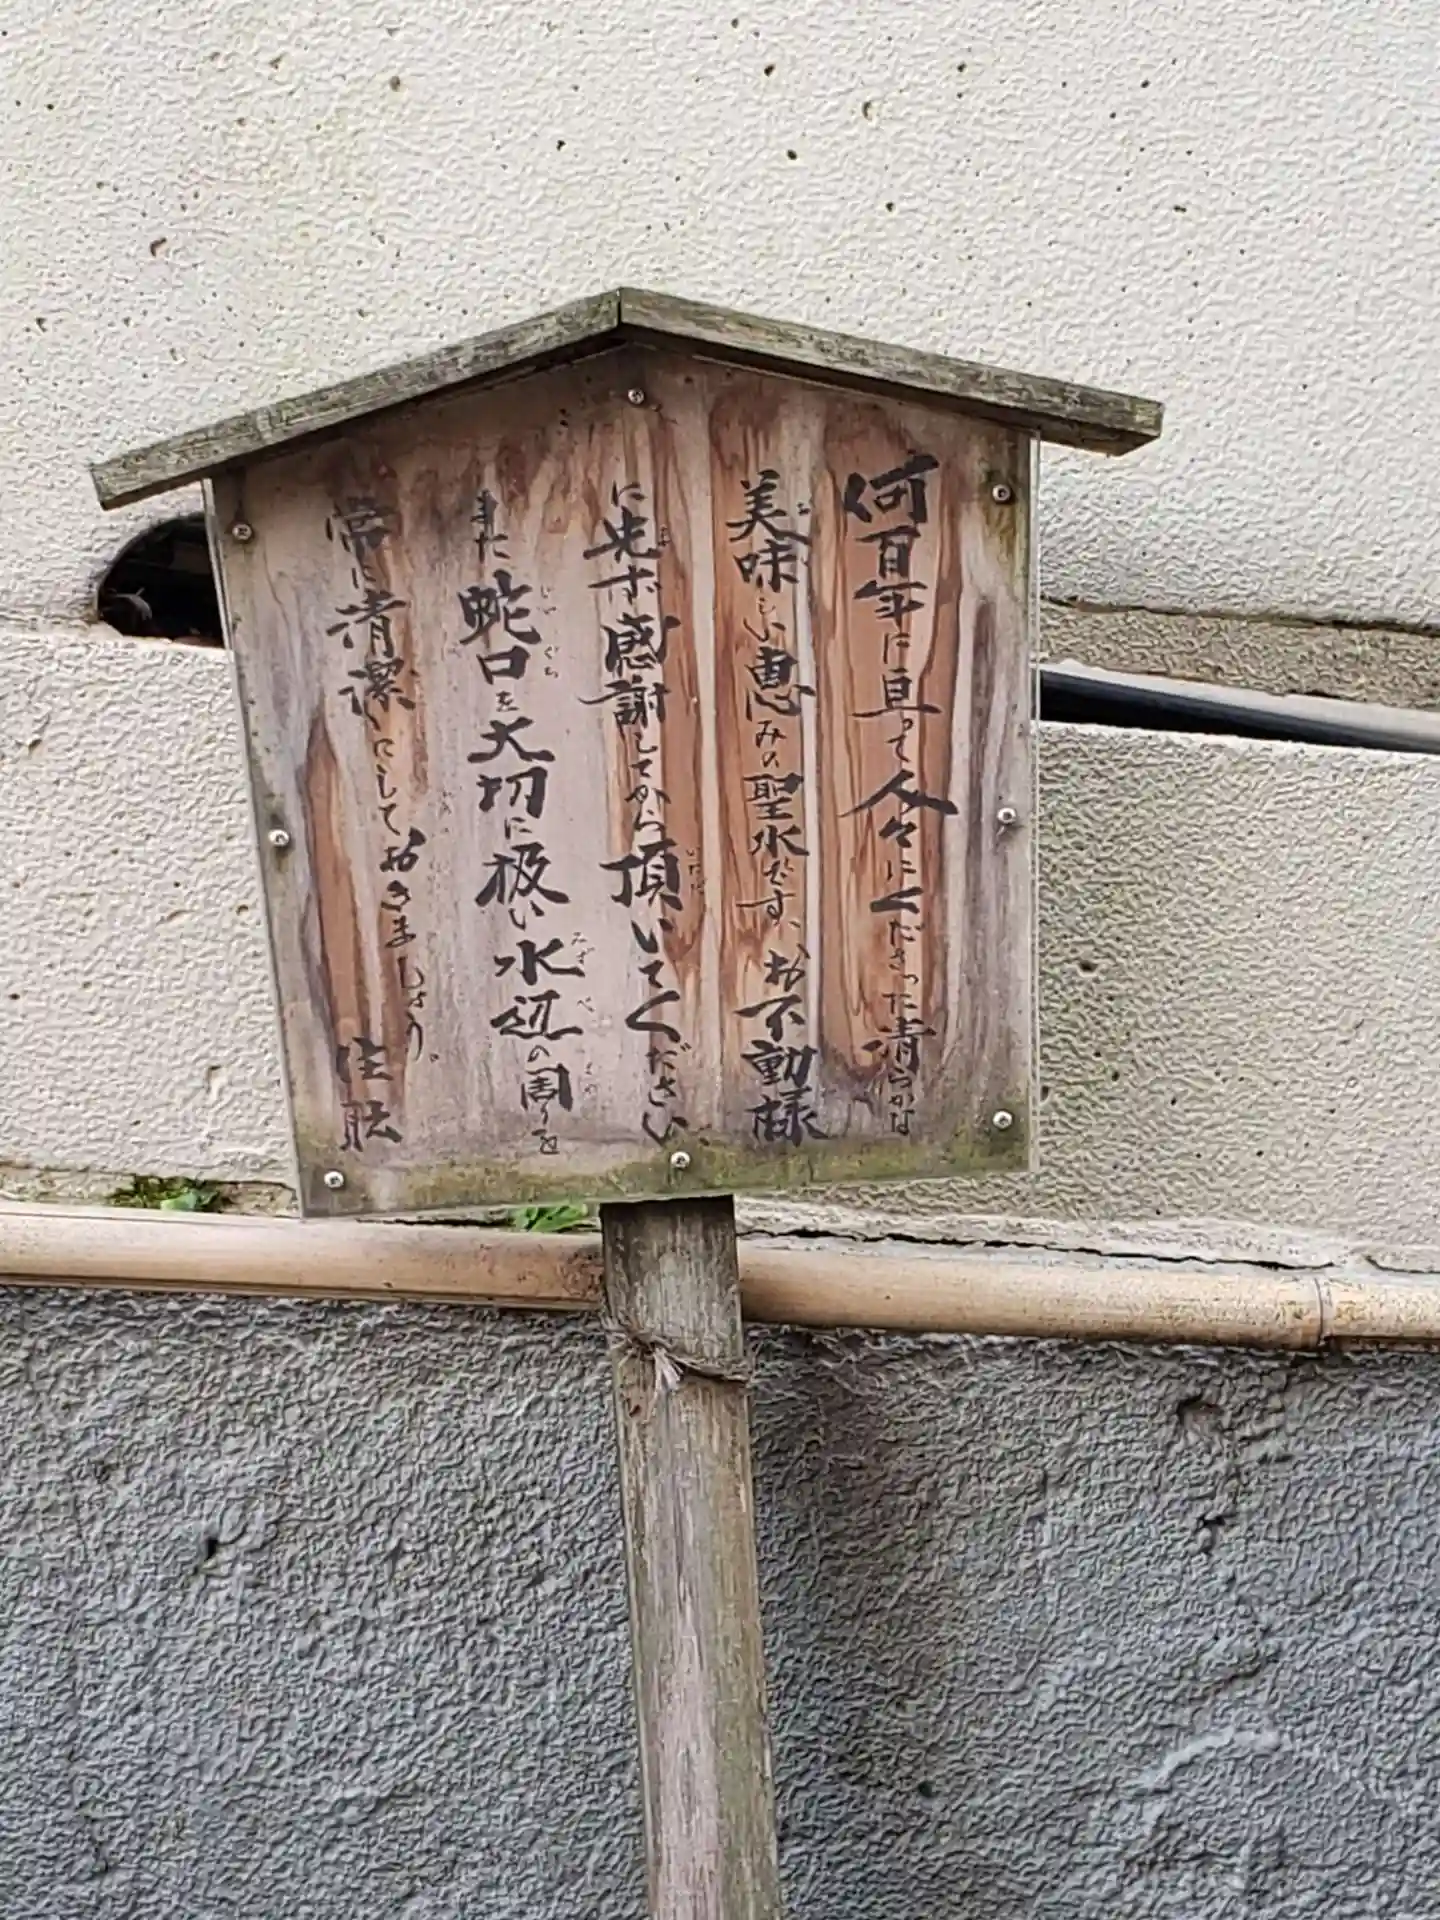 何百年に亘って人々にくださった清らかな
美味しい恵みの聖水です、お不動様
に先ず感謝してから頂いてください、
また蛇口を大切に扱い水辺の周りを
常に清潔にしておきましょう。
住職